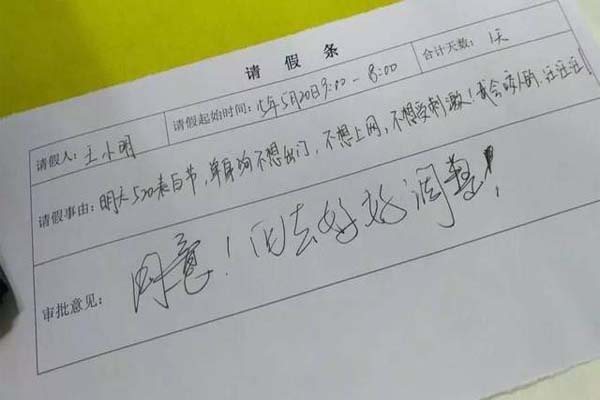 请假条
请假人：王小明 请假起始时间：15年5月20日9:00-8:00 合计天数：1天
请假事由：明天520表白节，单身狗不想出门，不想上网，不想受刺激！我会咬人的，汪汪汪！
审批意见：同意！回去好好调整！